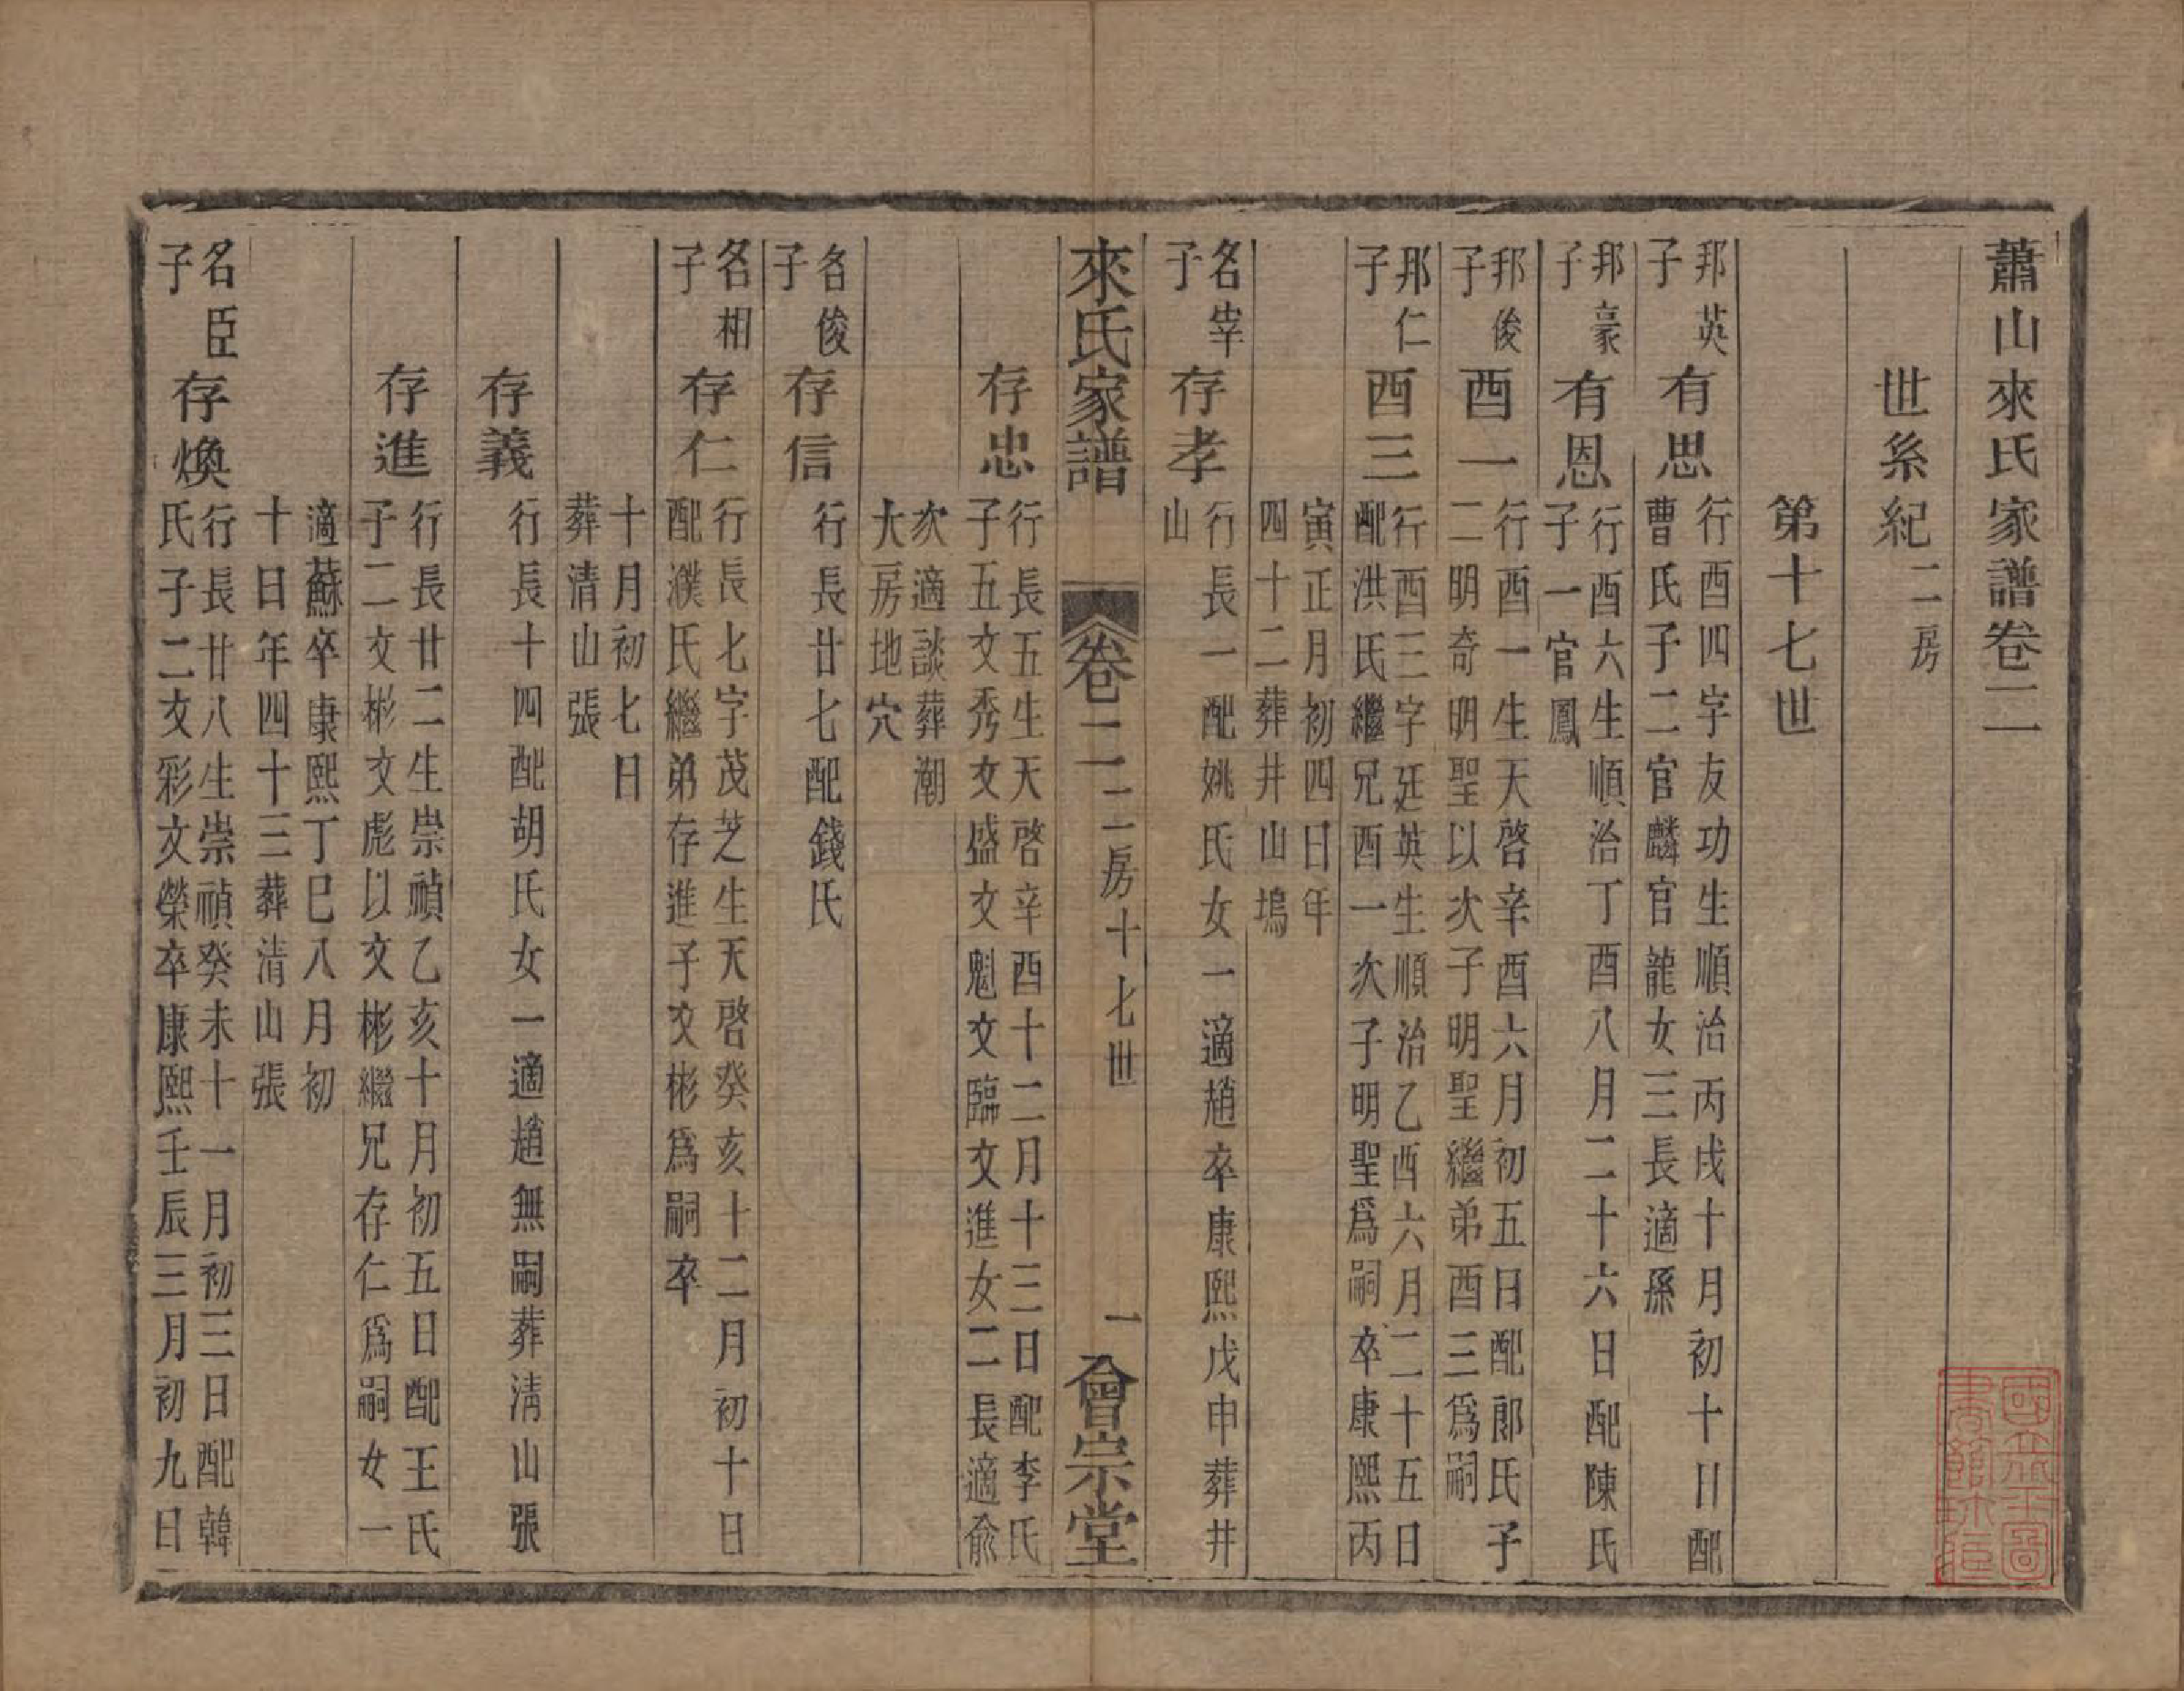 蕭山來氏家譜卷二
世系紀二房
第十七世
邦英子
有思
行酉四字友功生順治丙戌十月初十日配
曹氏子二官麟官龍女三長適孫
邦豪子
有恩
行酉六生順治丁酉八月二十六日配陳氏
子一官鳳
邦俊子
酉一
行酉一生天啓辛酉六月初五日配郎氏子
二明奇明聖以次子明聖繼弟酉三為嗣
邦仁子
酉三
行酉三字廷英生順治乙酉六月二十五日
配洪氏繼兄酉一次子明聖為嗣卒康熙丙
寅正月初四日年
四十二葬井山塢
名宰子
存孝
行長一配姚氏女一適趙卒康熙戊申葬井
山
來氏家譜
卷二
二房十七世
一
會宗堂
存忠
行長五生天啓辛酉十二月十三日配李氏
子五文秀文盛文魁文臨文進女二長適俞
次適談葬潮
大房地穴
名俊子
存信
行長廿七配錢氏
名相子
存仁
行長七字茂芝生天啓癸亥十二月初十日
配濮氏繼弟存進子文彬為嗣卒
十月初七日
葬清山張
存義
行長十四配胡氏女一適趙無嗣葬清山張
存進
行長廿二生崇禎乙亥十月初五日配王氏
子二文彬文彪以文彬繼兄存仁為嗣女一
適蘇卒康熙丁巳八月初
十日年四十三葬清山張
名臣子
存煥
行長廿八生崇禎癸未十一月初三日配韓
氏子二文彩文榮卒康熙壬辰三月初九日